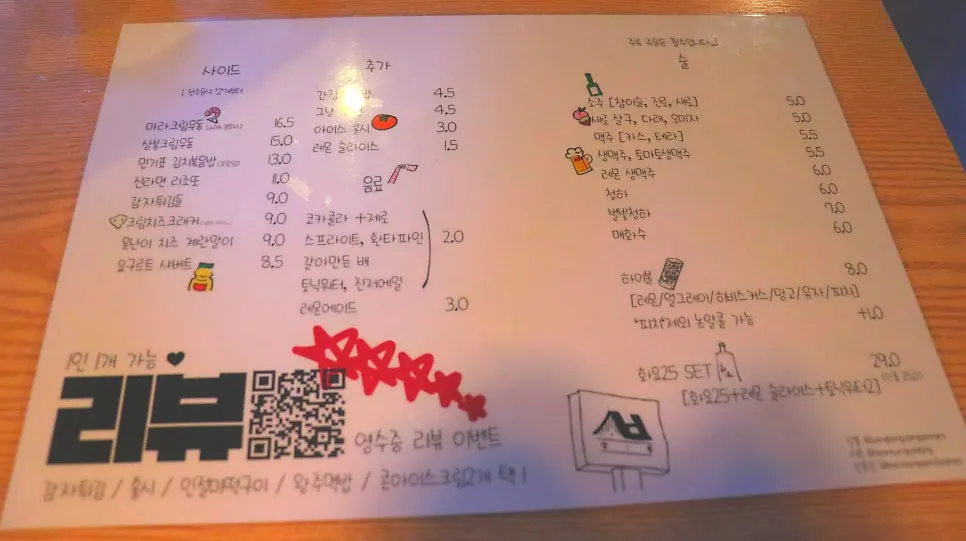 사이드
마라크림우동
16.5
삼봉크림우동
15.0
민기표 김치볶음밥
13.0
신라면 리조또
11.0
감자튀김들
9.0
크림치즈크래커
9.0
못난이 치즈 계란말이
9.0
요구르트 샤베트
8.5
추가
4.5
4.5
아이스 홍시
3.0
레몬 슬라이스
1.5
음료
코카콜라 + 제로
스프라이트, 환타파인
2.0
갈아만든 배
토닉워터, 진저에일
레몬에이드
3.0
1인 1개 가능 ♥
리뷰
영수증 리뷰 이벤트
감자튀김 / 홍시 / 인절미떡구이 / 왕주먹밥 / 콘아이스크림2개 택 1
주류 주문은 필수입니다
술
소주 [참이슬, 진로, 새로]
5.0
새로 살구, 다래, 오미자
5.0
맥주 [카스, 테라]
5.5
생맥주, 토마토생맥주
5.5
레몬 생맥주
6.0
청하
6.0
별빛청하
7.0
매화수
6.0
하이볼
8.0
[레몬/얼그레이/히비스커스/망고/유자/피치]
'피치'제외 논알콜 가능
+1.0
화요25 SET
29.0
[화요25+레몬 슬라이스+토닉워터2]